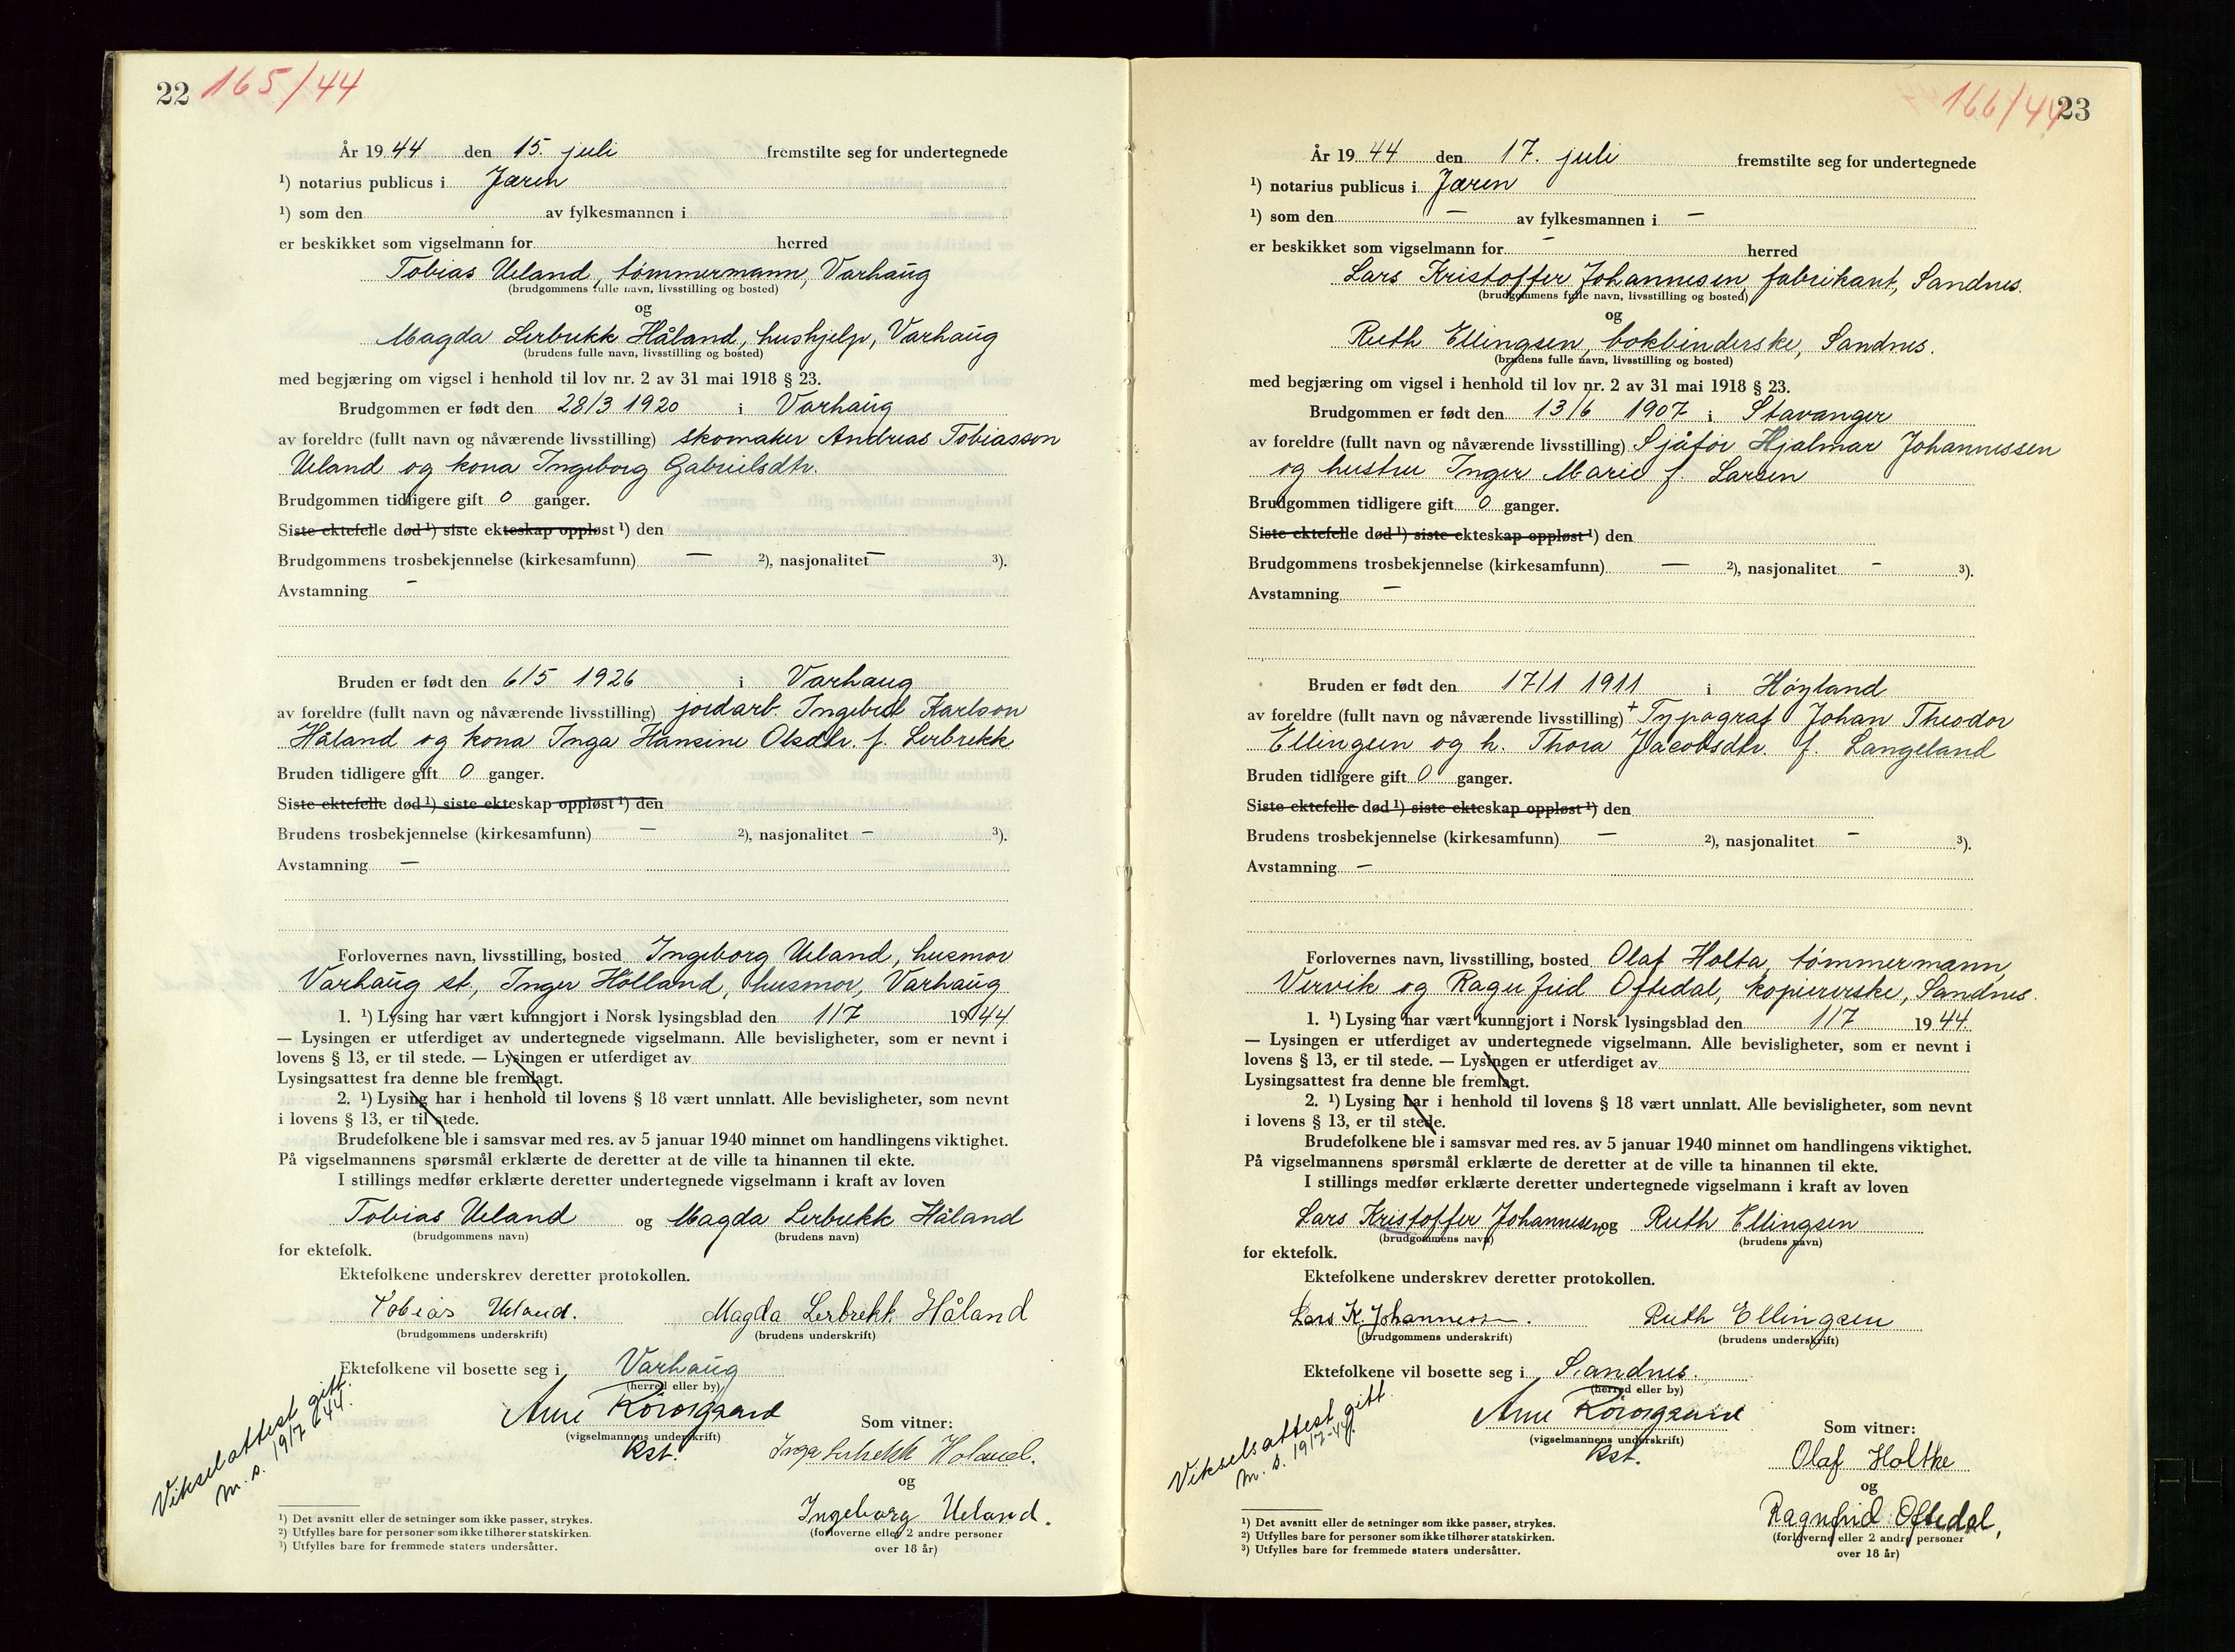 22 165/44
År 1944 den 15. juli fremstilte seg for undertegnede
¹) notarius publicus i Jæren
¹) som den av fylkesmannen i
er beskikket som vigselmann for herred
Tobias Ueland, tømmermann, Varhaug
(brudgommens fulle navn, livsstilling og bosted)
og
Magda Lerbrekk Håland, hushjelp, Varhaug
(brudens fulle navn, livsstilling og bosted)
med begjæring om vigsel i henhold til lov nr. 2 av 31 mai 1918 § 23.
Brudgommen er født den 28/3 1920 i Varhaug
av foreldre (fullt navn og nåværende livsstilling) skomaker Andreas Tobiasson
Ueland og kona Ingeborg Gabrielsdtr.
Brudgommen tidligere gift 0 ganger.
Siste ektefelle død ¹) siste ekteskap oppløst ¹) den
Brudgommens trosbekjennelse (kirkesamfunn) — ²), nasjonalitet — ³).
Avstamning —
Bruden er født den 6/5 1926 i Varhaug
av foreldre (fullt navn og nåværende livsstilling) jordarb. Ingebret Karlson
Håland og kona Inga Hansine Olsdtr. f. Lerbrekk
Bruden tidligere gift 0 ganger.
Siste ektefelle død ¹) siste ekteskap oppløst ¹) den
Brudens trosbekjennelse (kirkesamfunn) — ²), nasjonalitet — ³).
Avstamning —
Forlovernes navn, livsstilling, bosted Ingeborg Ueland, husmor
Varhaug st, Inger Hølland, husmor, Varhaug
1. ¹) Lysing har vært kunngjort i Norsk lysingsblad den 1/7 1944
— Lysingen er utferdiget av undertegnede vigselmann. Alle bevisligheter, som er nevnt i
lovens § 13, er til stede. — Lysingen er utferdiget av
Lysingsattest fra denne ble fremlagt.
2. ¹) Lysing har i henhold til lovens § 18 vært unnlatt. Alle bevisligheter, som nevnt
i lovens § 13, er til stede.
Brudefolkene ble i samsvar med res. av 5 januar 1940 minnet om handlingens viktighet.
På vigselmannens spørsmål erklærte de deretter at de ville ta hinannen til ekte.
I stillings medfør erklærte deretter undertegnede vigselmann i kraft av loven
Tobias Ueland og Magda Lerbrekk Håland
(brudgommens navn) (brudens navn)
for ektefolk.
Ektefolkene underskrev deretter protokollen.
Tobias Ueland. Magda Lerbrekk Håland
(brudgommens underskrift) (brudens underskrift)
Ektefolkene vil bosette seg i Varhaug
(herred eller by)
Vikselattest gitt
m. s. 19/7 44.
Arne
(vigselmannens underskrift)
Kst.
Som vitner:
Inga Lerbrekk Håland.
og
Ingeborg Ueland.
(forloverne eller 2 andre personer
over 18 år)
¹) Det avsnitt eller de setninger som ikke passer, strykes.
²) Utfylles bare for personer som ikke tilhører statskirken.
³) Utfylles bare for fremmede staters undersåtter.
166/44 23
År 1944 den 17. juli fremstilte seg for undertegnede
¹) notarius publicus i Jæren
¹) som den — av fylkesmannen i —
er beskikket som vigselmann for — herred
Lars Kristoffer Johannesen, fabrikant, Sandnes.
(brudgommens fulle navn, livsstilling og bosted)
og
Ruth Ellingsen, bokbinderske, Sandnes.
(brudens fulle navn, livsstilling og bosted)
med begjæring om vigsel i henhold til lov nr. 2 av 31 mai 1918 § 23.
Brudgommen er født den 13/6 1907 i Stavanger
av foreldre (fullt navn og nåværende livsstilling) Sjåfør Hjalmar Johannessen
og hustru Inger Marie f. Larsen
Brudgommen tidligere gift 0 ganger.
Siste ektefelle død ¹) siste ekteskap oppløst ¹) den
Brudgommens trosbekjennelse (kirkesamfunn) — ²), nasjonalitet — ³).
Avstamning —
Bruden er født den 17/1 1911 i Høyland
av foreldre (fullt navn og nåværende livsstilling) + Typograf Johan Theodor
Ellingsen og h. Thora Jacobsdtr. f. Langeland
Bruden tidligere gift 0 ganger.
Siste ektefelle død ¹) siste ekteskap oppløst ¹) den
Brudens trosbekjennelse (kirkesamfunn) — ²), nasjonalitet — ³).
Avstamning —
Forlovernes navn, livsstilling, bosted Olaf Holta, tømmermann,
Vervik og Ragnfrid Oftedal, kopiererske, Sandnes.
1. ¹) Lysing har vært kunngjort i Norsk lysingsblad den 1/7 1944
— Lysingen er utferdiget av undertegnede vigselmann. Alle bevisligheter, som er nevnt i
lovens § 13, er til stede. — Lysingen er utferdiget av
Lysingsattest fra denne ble fremlagt.
2. ¹) Lysing har i henhold til lovens § 18 vært unnlatt. Alle bevisligheter, som nevnt
i lovens § 13, er til stede.
Brudefolkene ble i samsvar med res. av 5 januar 1940 minnet om handlingens viktighet.
På vigselmannens spørsmål erklærte de deretter at de ville ta hinannen til ekte.
I stillings medfør erklærte deretter undertegnede vigselmann i kraft av loven
Lars Kristoffer Johannesen og Ruth Ellingsen
(brudgommens navn) (brudens navn)
for ektefolk.
Ektefolkene underskrev deretter protokollen.
Lars K. Johannesen. Ruth Ellingsen
(brudgommens underskrift) (brudens underskrift)
Ektefolkene vil bosette seg i Sandnes.
(herred eller by)
Vikselsattest gitt
m. s. 19/7-44.
Arne
(vigselmannens underskrift)
Kst.
Som vitner:
Olaf Holthe
og
Ragnfrid Oftedal,
(forloverne eller 2 andre personer
over 18 år)
¹) Det avsnitt eller de setninger som ikke passer, strykes.
²) Utfylles bare for personer som ikke tilhører statskirken.
³) Utfylles bare for fremmede staters undersåtter.